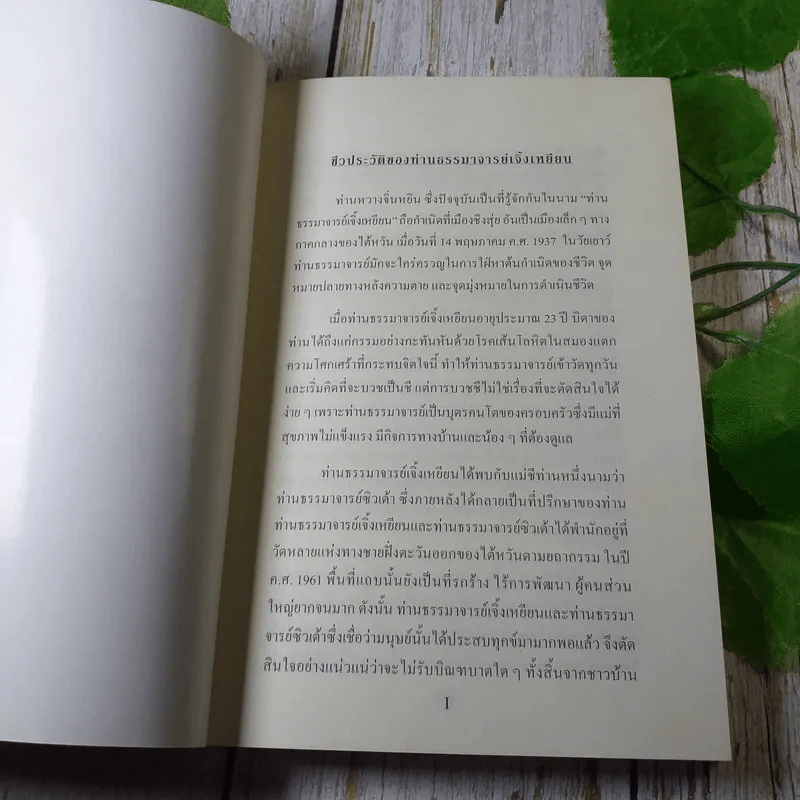 ชีวประวัติของท่านธรรมาจารย์เจิ้งเหยียน
ท่านหวางจิ่นหยิน ซึ่งปัจจุบันเป็นที่รู้จักกันในนาม “ท่าน
ธรรมาจารย์เจิ้งเหยียน” ถือกำเนิดที่เมืองชิงสุ่ย อันเป็นเมืองเล็ก ๆ ทาง
ภาคกลางของไต้หวัน เมื่อวันที่ 14 พฤษภาคม ค.ศ. 1937 ในวัยเยาว์
ท่านธรรมาจารย์มักจะใคร่ครวญในการใฝ่หาต้นกำเนิดของชีวิต จุด
หมายปลายทางหลังความตาย และจุดมุ่งหมายในการดำเนินชีวิต
เมื่อท่านธรรมาจารย์เจิ้งเหยียนอายุประมาณ 23 ปี บิดาของ
ท่านได้ถึงแก่กรรมอย่างกะทันหันด้วยโรคเส้นโลหิตในสมองแตก
ความโศกเศร้าที่กระทบจิตใจนี้ ทำให้ท่านธรรมาจารย์เข้าวัดทุกวัน
และเริ่มคิดที่จะบวชเป็นชี แต่การบวชชีไม่ใช่เรื่องที่จะตัดสินใจได้
ง่าย ๆ เพราะท่านธรรมาจารย์เป็นบุตรคนโตของครอบครัวซึ่งมีแม่ที่
สุขภาพไม่แข็งแรง มีกิจการทางบ้านและน้อง ๆ ที่ต้องดูแล
ท่านธรรมาจารย์เจิ้งเหยียนได้พบกับแม่ชีท่านหนึ่งนามว่า
ท่านธรรมาจารย์ซิวเต้า ซึ่งภายหลังได้กลายเป็นที่ปรึกษาของท่าน
ท่านธรรมาจารย์เจิ้งเหยียนและท่านธรรมาจารย์ซิวเต้าได้พำนักอยู่ที่
วัดหลายแห่งทางชายฝั่งตะวันออกของไต้หวันตามยถากรรม ในปี
ค.ศ. 1961 พื้นที่แถบนั้นยังเป็นที่รกร้าง ไร้การพัฒนา ผู้คนส่วน
ใหญ่ยากจนมาก ดังนั้น ท่านธรรมาจารย์เจิ้งเหยียนและท่านธรรมา
จารย์ซิวเต้าซึ่งเชื่อว่ามนุษย์นั้นได้ประสบทุกข์มามากพอแล้ว จึงตัด
สินใจอย่างแน่วแน่ว่าจะไม่รับบิณฑบาตใด ๆ ทั้งสิ้นจากชาวบ้าน
I